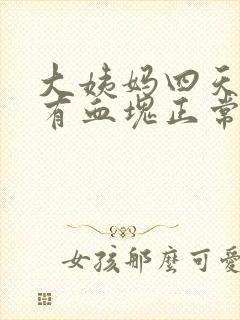 大姨妈四天
有血塊正常
女孩那麼可愛